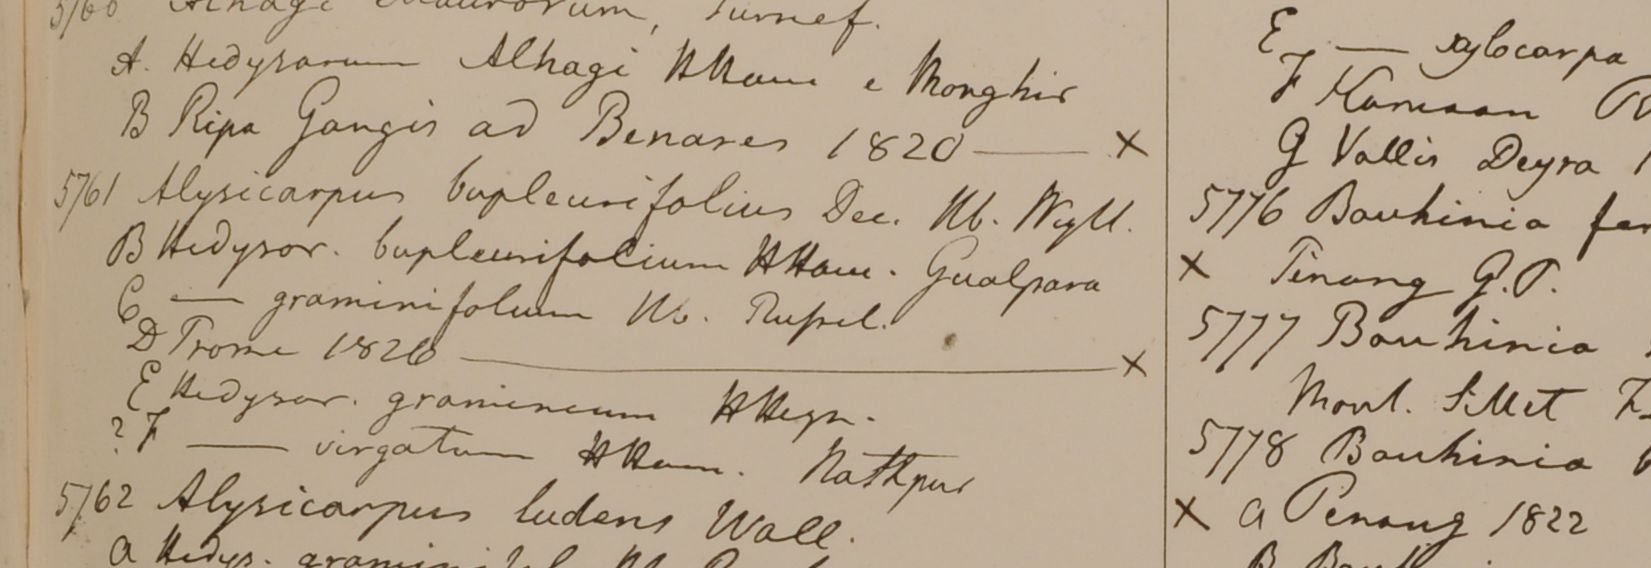 5760 Alhagi Maurorum, Turnef.
A. Hedysarum Alhagi HHam e Monghir
B Ripa Gangis ad Benares 1820 — ×
5761 Alysicarpus bupleurifolius Dec. Hb. Wight.
B Hedysar. bupleurifolium HHam. Gualpara
C — graminifolium Hb. Russel.
D Prome 1826 — ×
E Hedysar. gramineum HHeyn.
? F — virgatum HHam. Nathpur
5762 Alysicarpus ludens Wall.
a Hedys.
E — xylocarpa
F
G Vallis Deyra
5776 Bauhinia
× Pinang G.P.
5777 Bauhinia
Mont. Sillet
5778 Bauhinia
× a Penang 1822
B